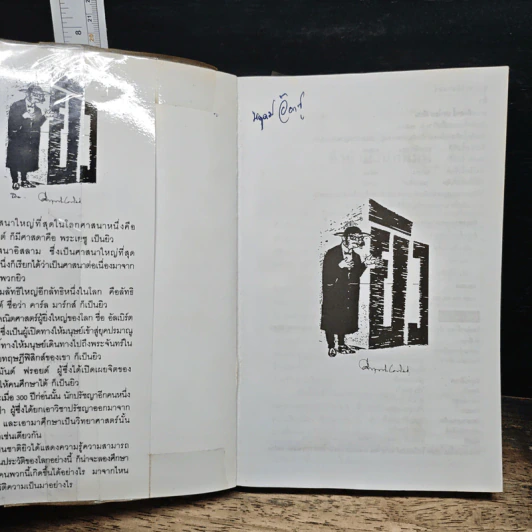 สนาใหญ่ที่สุดในโลกศาสนาหนึ่งคือ
ต์ ก็มีศาสดาคือ พระเยซู เป็นยิว
สนาอิสลาม ซึ่งเป็นศาสนาใหญ่ที่สุด
นึ่งก็เรียกได้ว่าเป็นศาสนาต่อเนื่องมาจาก
พวกยิว
มลัทธิใหญ่อีกลัทธิหนึ่งในโลก คือลัทธิ
ต์ ชื่อว่า คาร์ล มาร์กส์ ก็เป็นยิว
คณิตศาสตร์ผู้ยิ่งใหญ่ของโลก ชื่อ อัลเบิร์ต
ซึ่งเป็นผู้เปิดทางให้มนุษย์เข้าสู่ยุคปรมาณู
ทางให้มนุษย์เดินทางไปถึงพระจันทร์ใน
ทฤษฎีฟิสิกส์ของเขา ก็เป็นยิว
มันด์ ฟรอยด์ ผู้ซึ่งได้เปิดเผยจิตของ
ให้คนศึกษาได้ ก็เป็นยิว
ะเมื่อ 300 ปีก่อนนั้น นักปรัชญาอีกคนหนึ่ง
ผู้ซึ่งได้ยกเอาวิชาปรัชญาออกมาจาก
และเอามาศึกษาเป็นวิทยาศาสตร์นั้น
เช่นเดียวกัน
นชาติยิวได้แสดงความรู้ความสามารถ
นประวัติของโลกอย่างนี้ ก็น่าจะลองศึกษา
คนพวกนี้เกิดขึ้นได้อย่างไร มาจากไหน
ติความเป็นมาอย่างไร
8